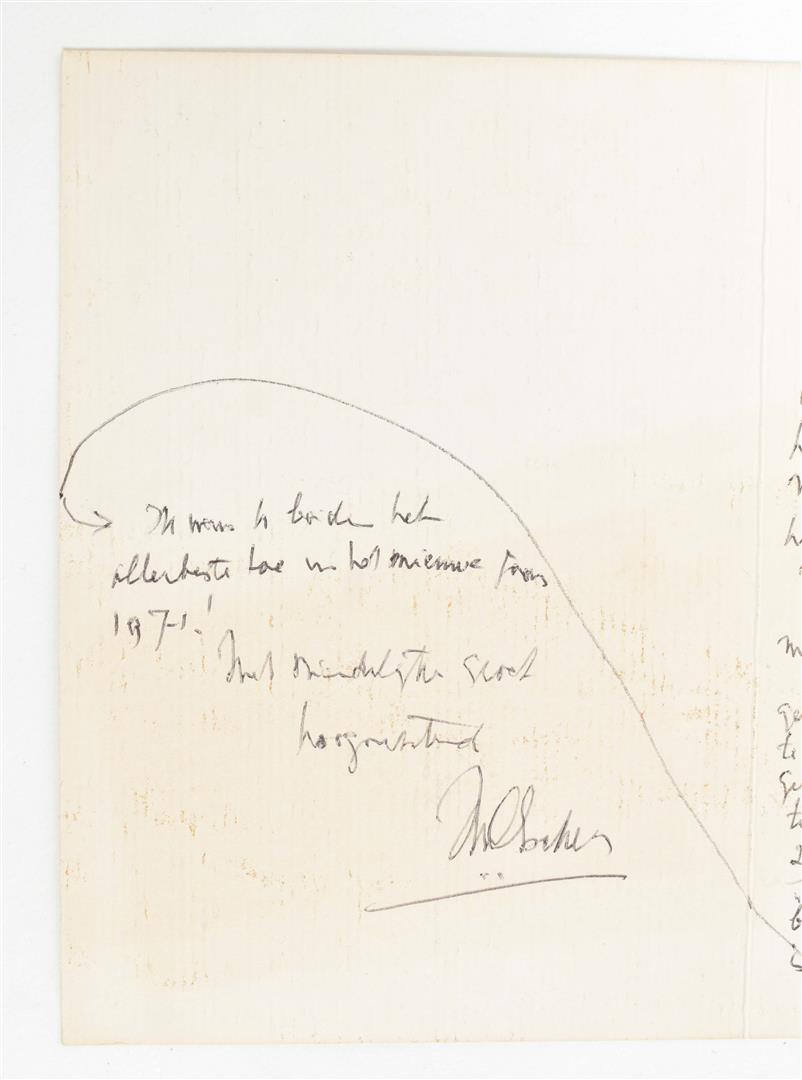 Ik wens u beiden het
allerbeste toe in het nieuwe jaar
1971.!
Met vriendelijke groet
hoogachtend